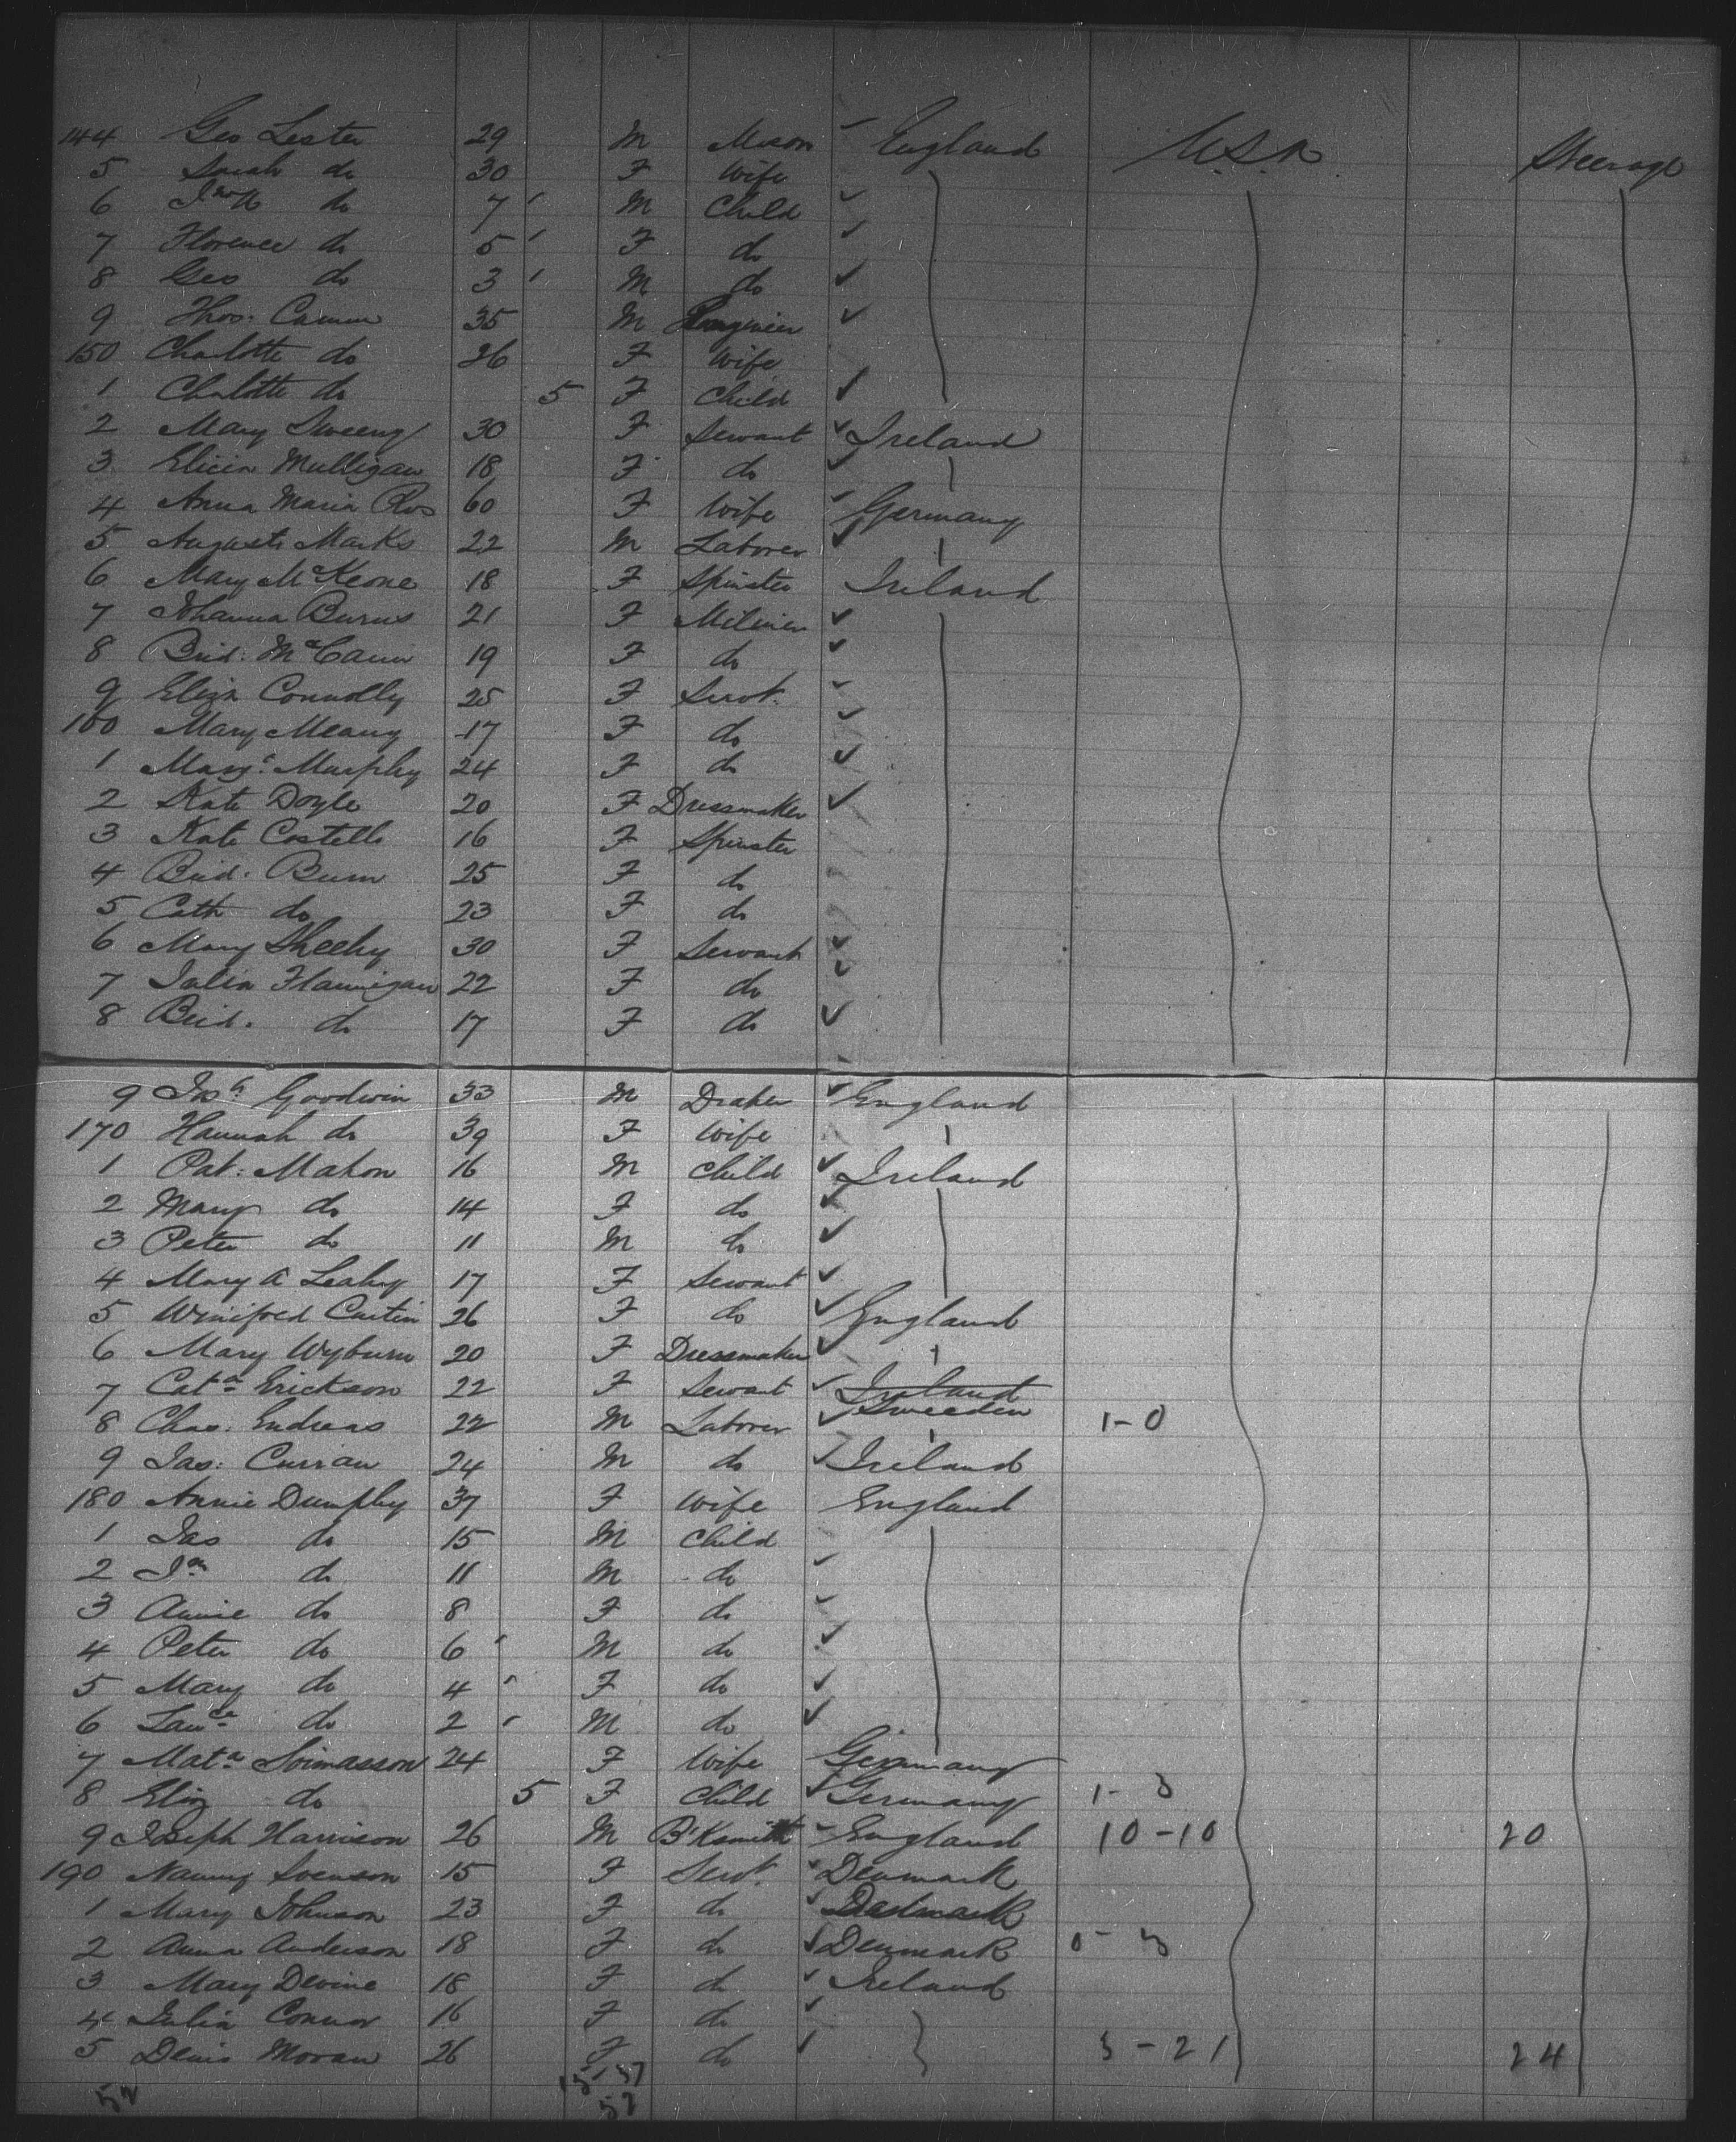 144 Geo Lester 29 M Mason England U.S.A Steerage
5 Sarah do 30 F Wife
6 do 7 M Child
7 Florence do 5 F do
8 Geo do 3 M do
9 Thos: Camm 35 M
150 Charlotte do 26 F Wife
1 Chalotte do 5 F Child
2 Mary Sweeny 30 F Servant Ireland
3 Elicia Mulligan 18 F do
4 Anna Maria 60 F Wife Germany
5 August Marks 22 M Laborer
6 Mary McKeone 18 F Spinster Ireland
7 Johanna Burns 21 F Miliner
8 Brid: McCann 19 F do
9 Eliza Connolly 25 F Servt.
160 Mary Meany 17 F do
1 Margt. Murphy 24 F do
2 Kate Doyle 20 F Dressmaker
3 Kate Costello 16 F Spinster
4 Brid: Burn 25 F do
5 Cath do 23 F do
6 Mary Sheehy 30 F Servant
7 Julia Flannigan 22 F do
8 Brid. do 17 F do
9 Josh Goodwin 33 M Draper England
170 Hannah do 39 F Wife
1 Pat: Mahon 16 M Child Ireland
2 Mary do 14 F do
3 Peter do 11 M do
4 Mary A Leahy 17 F Servant
5 Winifred Curtin 26 F do England
6 Mary Wyburn 20 F Dressmaker
7 Cata Erickson 22 F Servant Ireland Sweeden
8 Chas: Endreas 22 M Laborer 1-0
9 Jas: Curran 24 M do Ireland
180 Annie Dumphy 37 F Wife England
1 Jas do 15 M Child
2 Jn do 11 M do
3 Annie do 8 F do
4 Peter do 6 M do
5 Mary do 4 F do
6 Lawce do 2 M do
7 Mata 24 F Wife Germany
8 Eliz do 5 F Child Germany 1-3
9 Joseph Harrison 26 M B'Ksmith England 10-10 20
190 Nanny Svenson 15 F Servt. Denmark
1 Mary Johnson 23 F do
2 Anna Anderson 18 F do Denmark 0-3
3 Mary Devine 18 F do Ireland
4 Julia Connor 16 F do
5 Denis Moran 26 F do 3-21 24
52 15-37
52